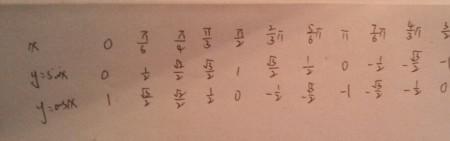 x 0 π/6 π/4 π/3 π/2 2/3π 5/6π π 7/6π 4/3π 3/2
y=sinx 0 1/2 √2/2 √3/2 1 √3/2 1/2 0 -1/2 -√3/2 -1
y=cosx 1 √3/2 √2/2 1/2 0 -1/2 -√3/2 -1 -√3/2 -1/2 0